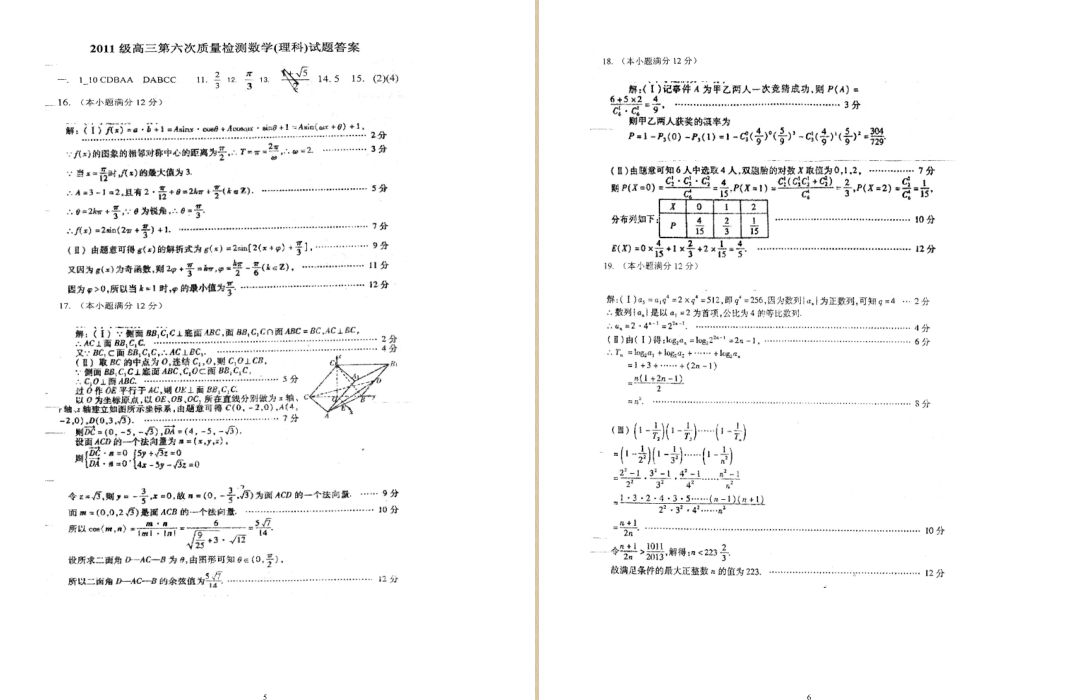 2011 级高三第六次质量检测数学(理科)试题答案
一. 1_10 CDBAA DABCC 11. 2/3 12. π/3 13. 14. 5 15. (2)(4)
16. (本小题满分 12 分)
解:(Ⅰ)f(x)=a·b+1=Asinx·cosθ+Acosωx·sinθ+1=Asin(ωx+θ)+1,
2 分
∵f(x)的图象的相邻对称中心的距离为π/2,∴T=π=2π/ω,∴ω=2. 3 分
∵当x=π/12时,f(x)的最大值为 3.
∴A=3-1=2,且有 2·π/12+θ=2kπ+π/2(k∈Z). 5 分
∴θ=2kπ+π/3,∵θ为锐角,∴θ=π/3.
∴f(x)=2sin(2x+π/3)+1. 7 分
(Ⅱ)由题意可得g(x)的解析式为g(x)=2sin[2(x+φ)+π/3], 9 分
又因为g(x)为奇函数,则2φ+π/3=kπ,φ=kπ/2-π/6(k∈Z), 11 分
因为φ>0,所以当k=1时,φ的最小值为π/3. 12 分
17. (本小题满分 12 分)
解:(Ⅰ)∵侧面BB₁C₁C⊥底面ABC,面BB₁C₁C∩面ABC=BC,AC⊥BC,
∴AC⊥面BB₁C₁C. 2 分
又∵BC₁⊂面BB₁C₁C,∴AC⊥BC₁. 4 分
(Ⅱ)取BC的中点为O,连结C₁O,则C₁O⊥CB,
∵侧面BB₁C₁C⊥底面ABC,C₁O⊂面BB₁C₁C,
∴C₁O⊥面ABC. 5 分
过O作OE平行于AC,则OE⊥面BB₁C₁C.
以O为坐标原点,以OE、OB、OC₁所在直线分别做为x轴、
y轴、z轴建立如图所示坐标系,由题意可得C(0,-2,0),A(4,
-2,0),D(0,3,√3). 7 分
则DC=(0,-5,-√3),DA=(4,-5,-√3).
设面ACD的一个法向量为n=(x,y,z),
则{DC·n=0 DA·n=0, {5y+√3z=0 4x-5y-√3z=0
令z=√3,则y=-3/5,x=0,故n=(0,-3/5,√3)为面ACD的一个法向量. 9 分
而m=(0,0,2√3)是面ACB的一个法向量. 10 分
所以cos(m,n)=m·n/|m|·|n|=6/(√(9/25+3)·√12)=5√7/14
设所求二面角D—AC—B为θ,由图形可知θ∈(0,π/2),
所以二面角D—AC—B的余弦值为5√7/14. 12 分
5
18. (本小题满分 12 分)
解:(Ⅰ)记事件A为甲乙两人一次竞猜成功,则P(A)=
(6+5×2)/(C₆¹·C₆¹)=4/9. 3 分
则甲乙两人获奖的概率为
P=1-P₃(0)-P₃(1)=1-C₃⁰(4/9)⁰(5/9)³-C₃¹(4/9)¹(5/9)²=304/729.
(Ⅱ)由题意可知6人中选取4人,双胞胎的对数X取值为0,1,2, 7 分
则P(X=0)= =4/15,P(X=1)= =2/3,P(X=2)= =1/15,
X 0 1 2
分布列如下: 10 分
P 4/15 2/3 1/15
E(X)=0×4/15+1×2/3+2×1/15=4/5. 12 分
19. (本小题满分 12 分)
解:(Ⅰ)a₅=a₁q⁴=2×q⁴=512,即q⁴=256,因为数列{aₙ}为正数列,可知q=4 2 分
∴数列{aₙ}是以a₁=2为首项,公比为4的等比数列.
∴aₙ=2·4ⁿ⁻¹=2²ⁿ⁻¹. 4 分
(Ⅱ)由(Ⅰ)得:log₂aₙ=log₂2²ⁿ⁻¹=2n-1, 6 分
∴Tₙ=log₂a₁+log₂a₂+……+log₂aₙ
=1+3+……+(2n-1)
=n(1+2n-1)/2
=n². 8 分
(Ⅲ)(1-1/T₂)(1-1/T₃)……(1-1/Tₙ)
=(1-1/2²)(1-1/3²)……(1-1/n²)
=(2²-1)/2²·(3²-1)/3²·(4²-1)/4²……(n²-1)/n²
=1·3·2·4·3·5……(n-1)(n+1)/2²·3²·4²……n²
=(n+1)/2n. 10 分
令(n+1)/2n>1011/2013,解得:n<223 2/3
故满足条件的最大正整数n的值为223. 12 分
6